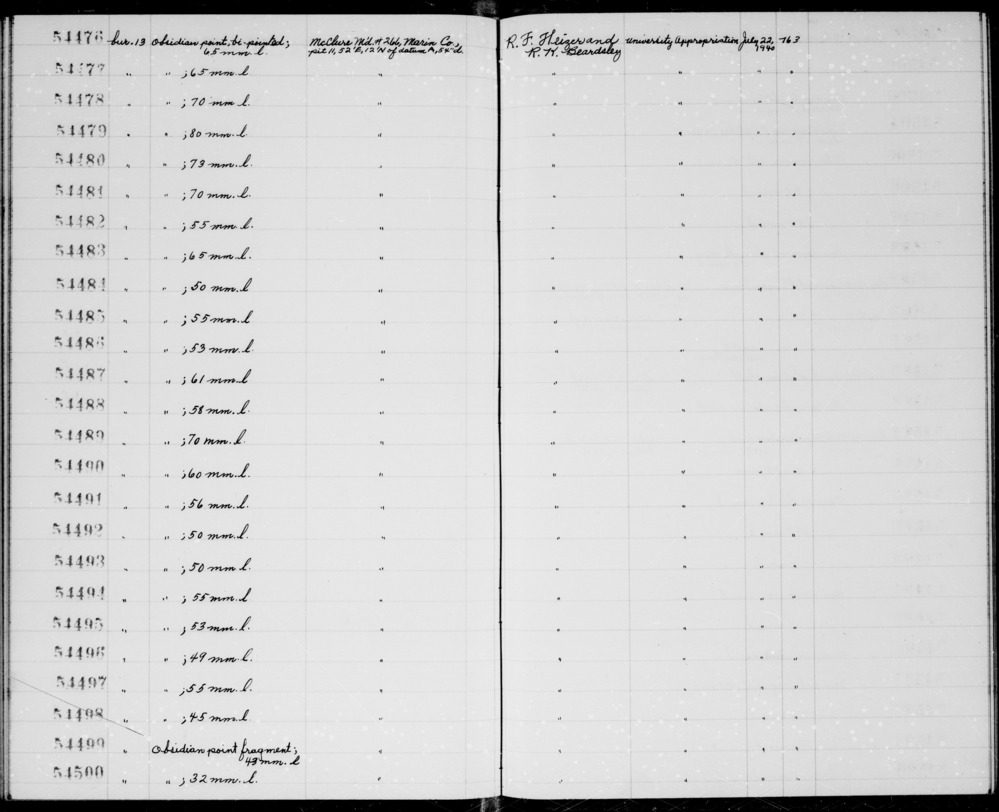 54476 bur. 13 obsidian point, bi-pointed; McClure Md. # 266, Marin Co., R. F. Heizer and University Appropriation July 22, 763
65 mm. l. pit 11, 52' E, 12' N of datum A, 54" d. R. K. Beardsley 1940
54477 " " ; 65 mm. l. " " " " "
54478 " " ; 70 mm. l. " " " " "
54479 " " ; 80 mm. l. " " " " "
54480 " " ; 73 mm. l. " " " " "
54481 " " ; 70 mm. l. " " " " "
54482 " " ; 55 mm. l. " " " " "
54483 " " ; 65 mm. l. " " " " "
54484 " " ; 50 mm. l " " " " "
54485 " " ; 55 mm. l " " " " "
54486 " " ; 53 mm. l. " " " " "
54487 " " ; 61 mm. l " " " " "
54488 " " ; 58 mm. l. " " " " "
54489 " " ; 70 mm. l. " " " " "
54490 " " ; 60 mm. l. " " " " "
54491 " " ; 56 mm. l. " " " " "
54492 " " ; 50 mm. l. " " " " "
54493 " " ; 50 mm. l. " " " " "
54494 " " ; 55 mm. l " " " " "
54495 " " ; 53 mm. l. " " " " "
54496 " " ; 49 mm. l. " " " " "
54497 " " ; 55 mm. l. " " " " "
54498 " " ; 45 mm. l " " " " "
54499 " Obsidian point fragment; " " " " "
43 mm. l
54500 " " ; 32 mm. l. " " " " "